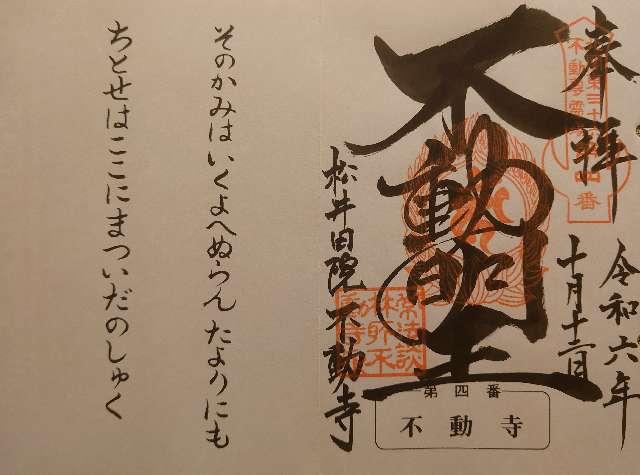 奉拝
令和六年
十月十二日
不動明王
松井田院不動寺
第四番
不動寺
そのかみはいくよへぬらんたよりにも
ちとせはここにまついだのしゅく